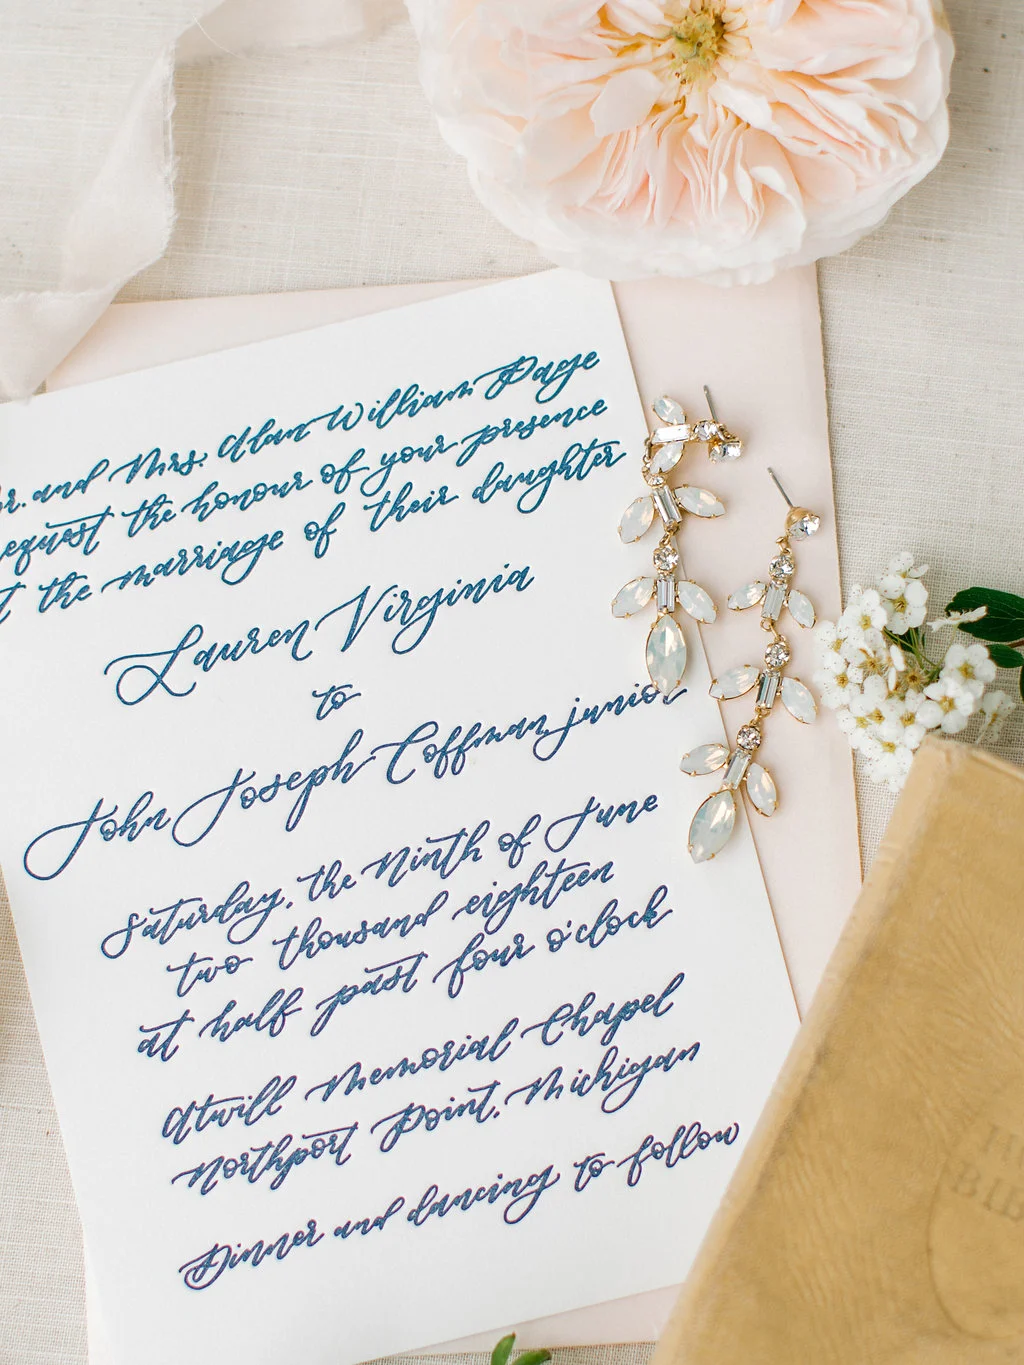 r. and Mrs. Alan William Page
equest the honour of your presence
t the marriage of their daughter
Lauren Virginia
to
John Joseph Coffman, junior
Saturday, the Ninth of June
two thousand eighteen
at half past four o'clock
Atwill Memorial Chapel
Northport Point, Michigan
Dinner and dancing to follow
BIB